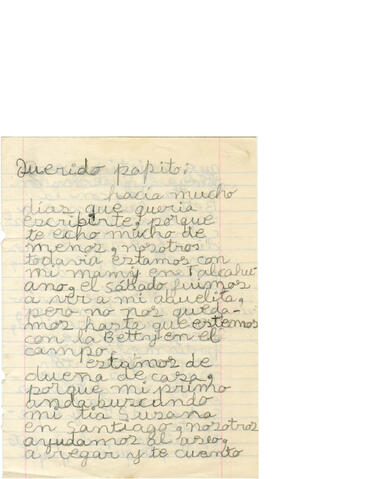 Querido papito:
hacía mucho
días que quería
escribirte, porque
te echo mucho de
menos, nosotros
todavía estamos con
mi mamy en Talcahu
ano, el sábado fuimos
a ver a mi abuelita,
pero no nos queda-
mos hasta que estemos
con la Betty en el
campo.
estamos de
duena de casa,
porque mi primo
anda buscando
mi tía Susana
en Santiago, nosotros
ayudamos al aseo,
a regar y te cuento